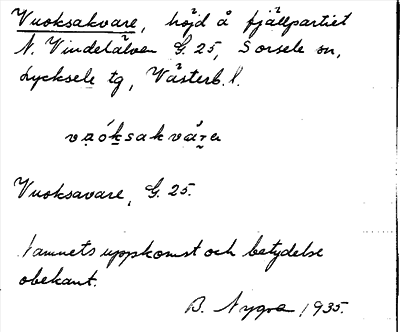 Vuoksakvare, höjd å fjällpartiet
N. Vindelälven G. 25, Sorsele sn,
Lycksele tg, Västerb. l.
vuóksakvárε
Vuoksavare, G. 25.
Namnets uppkomst och betydelse
obekant.
B. Nygra 1935.